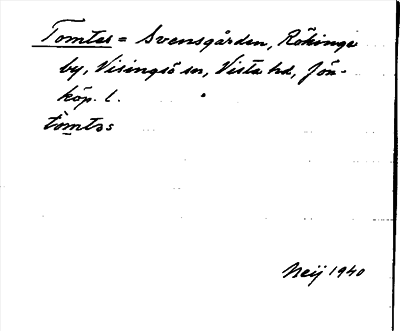 Tomtes = Svensgården, Rökinge
by, Visingsö sn, Vista hd, Jön-
köp. l.
tòmtss
Neij 1940